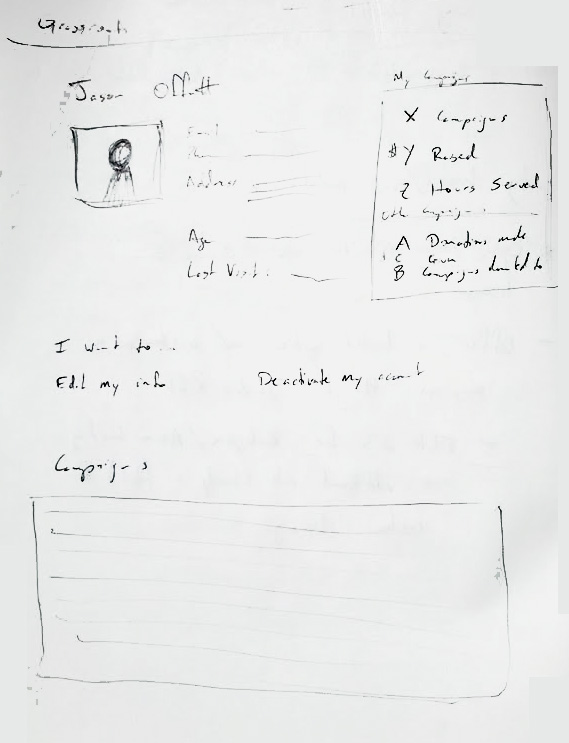 Jason Offutt
Email
Phone
Address
Age
Last Visit:
My Campaigns
X Campaigns
$Y Raised
Z Hours Served
Other Campaigns
A Donations made
C
B Campaigns donated to
I want to...
Edit my info
Deactivate my account
Campaigns